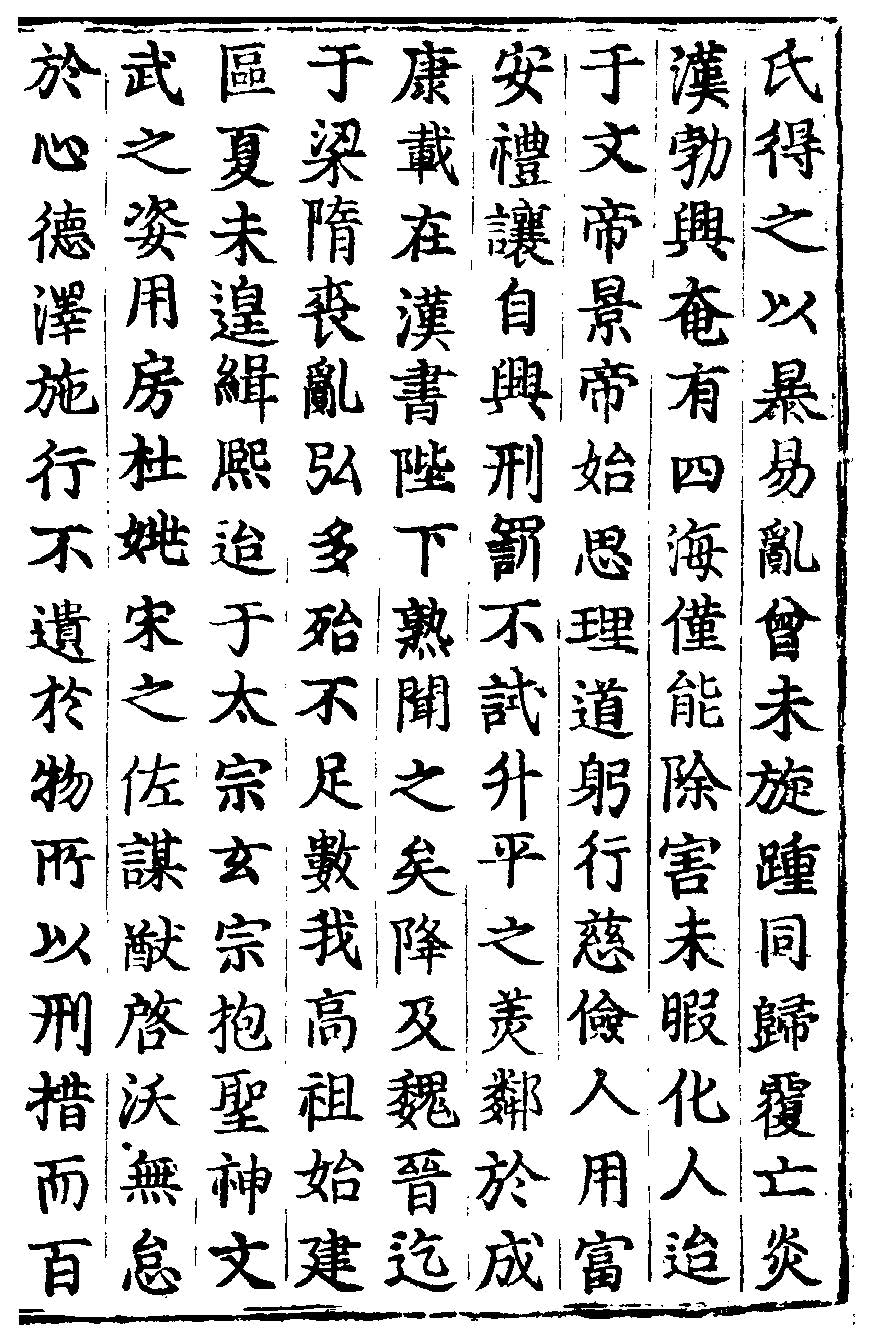 氏得之以暴易亂曾未旋踵同歸覆亡炎
漢勃興奄有四海僅能除害未暇化人迨
于文帝景帝始思理道躬行慈儉人用富
安禮讓自興刑罰不試升平之羙鄰於成
康載在漢書陛下熟聞之矣降及魏晉迄
于梁隋喪亂弘多殆不足數我高祖始建
區夏未遑緝熙迨于太宗玄宗抱聖神文
武之姿用房杜姚宋之佐謀猷啓沃無怠
於心德澤施行不遺於物所以刑措而百